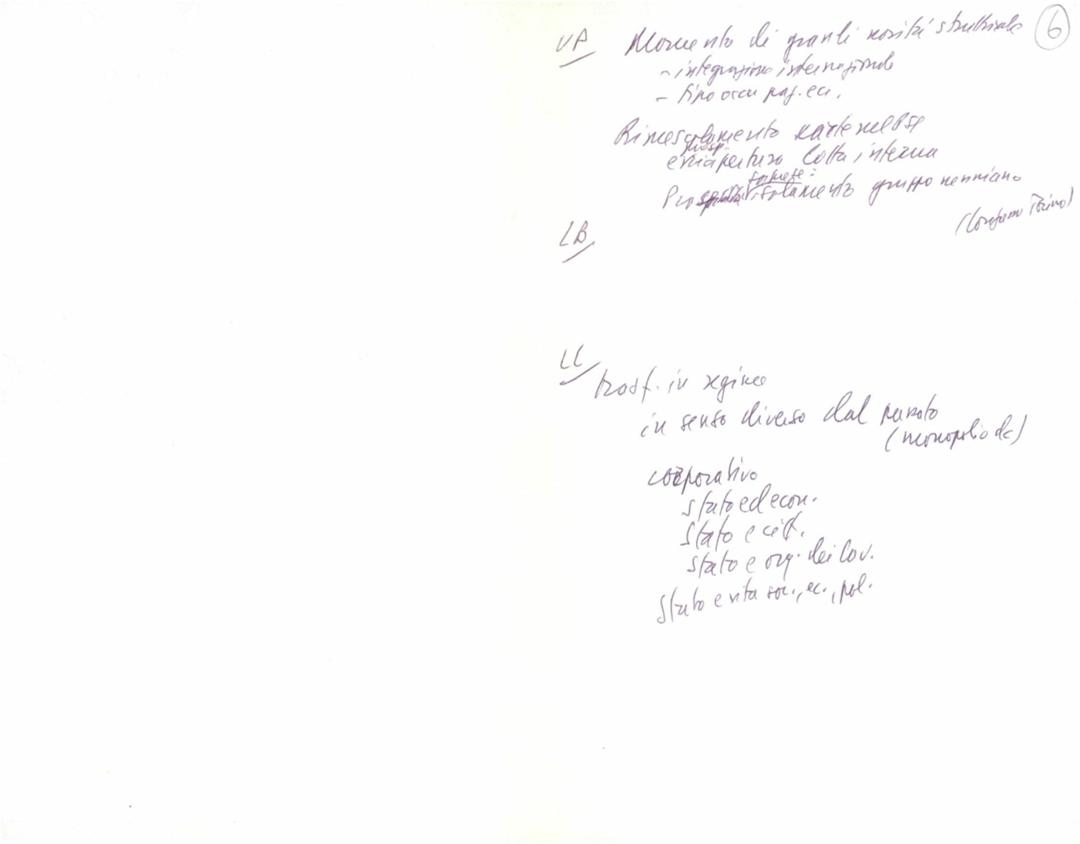 6
VP Momento di grandi novità strutturale
- integrazione internazionale
- tipo occu paz. ec.
Rimescolamento carte nel PSI
e riapertura lotta interna
isolamento gruppo nenniano
(Torino)
LB
LL
trasf. in regime
in senso diverso dal passato
(monopolio dc)
corporativo
stato ed econ.
stato e citt.
stato e org. dei lav.
Stato e vita soc., ec., pol.